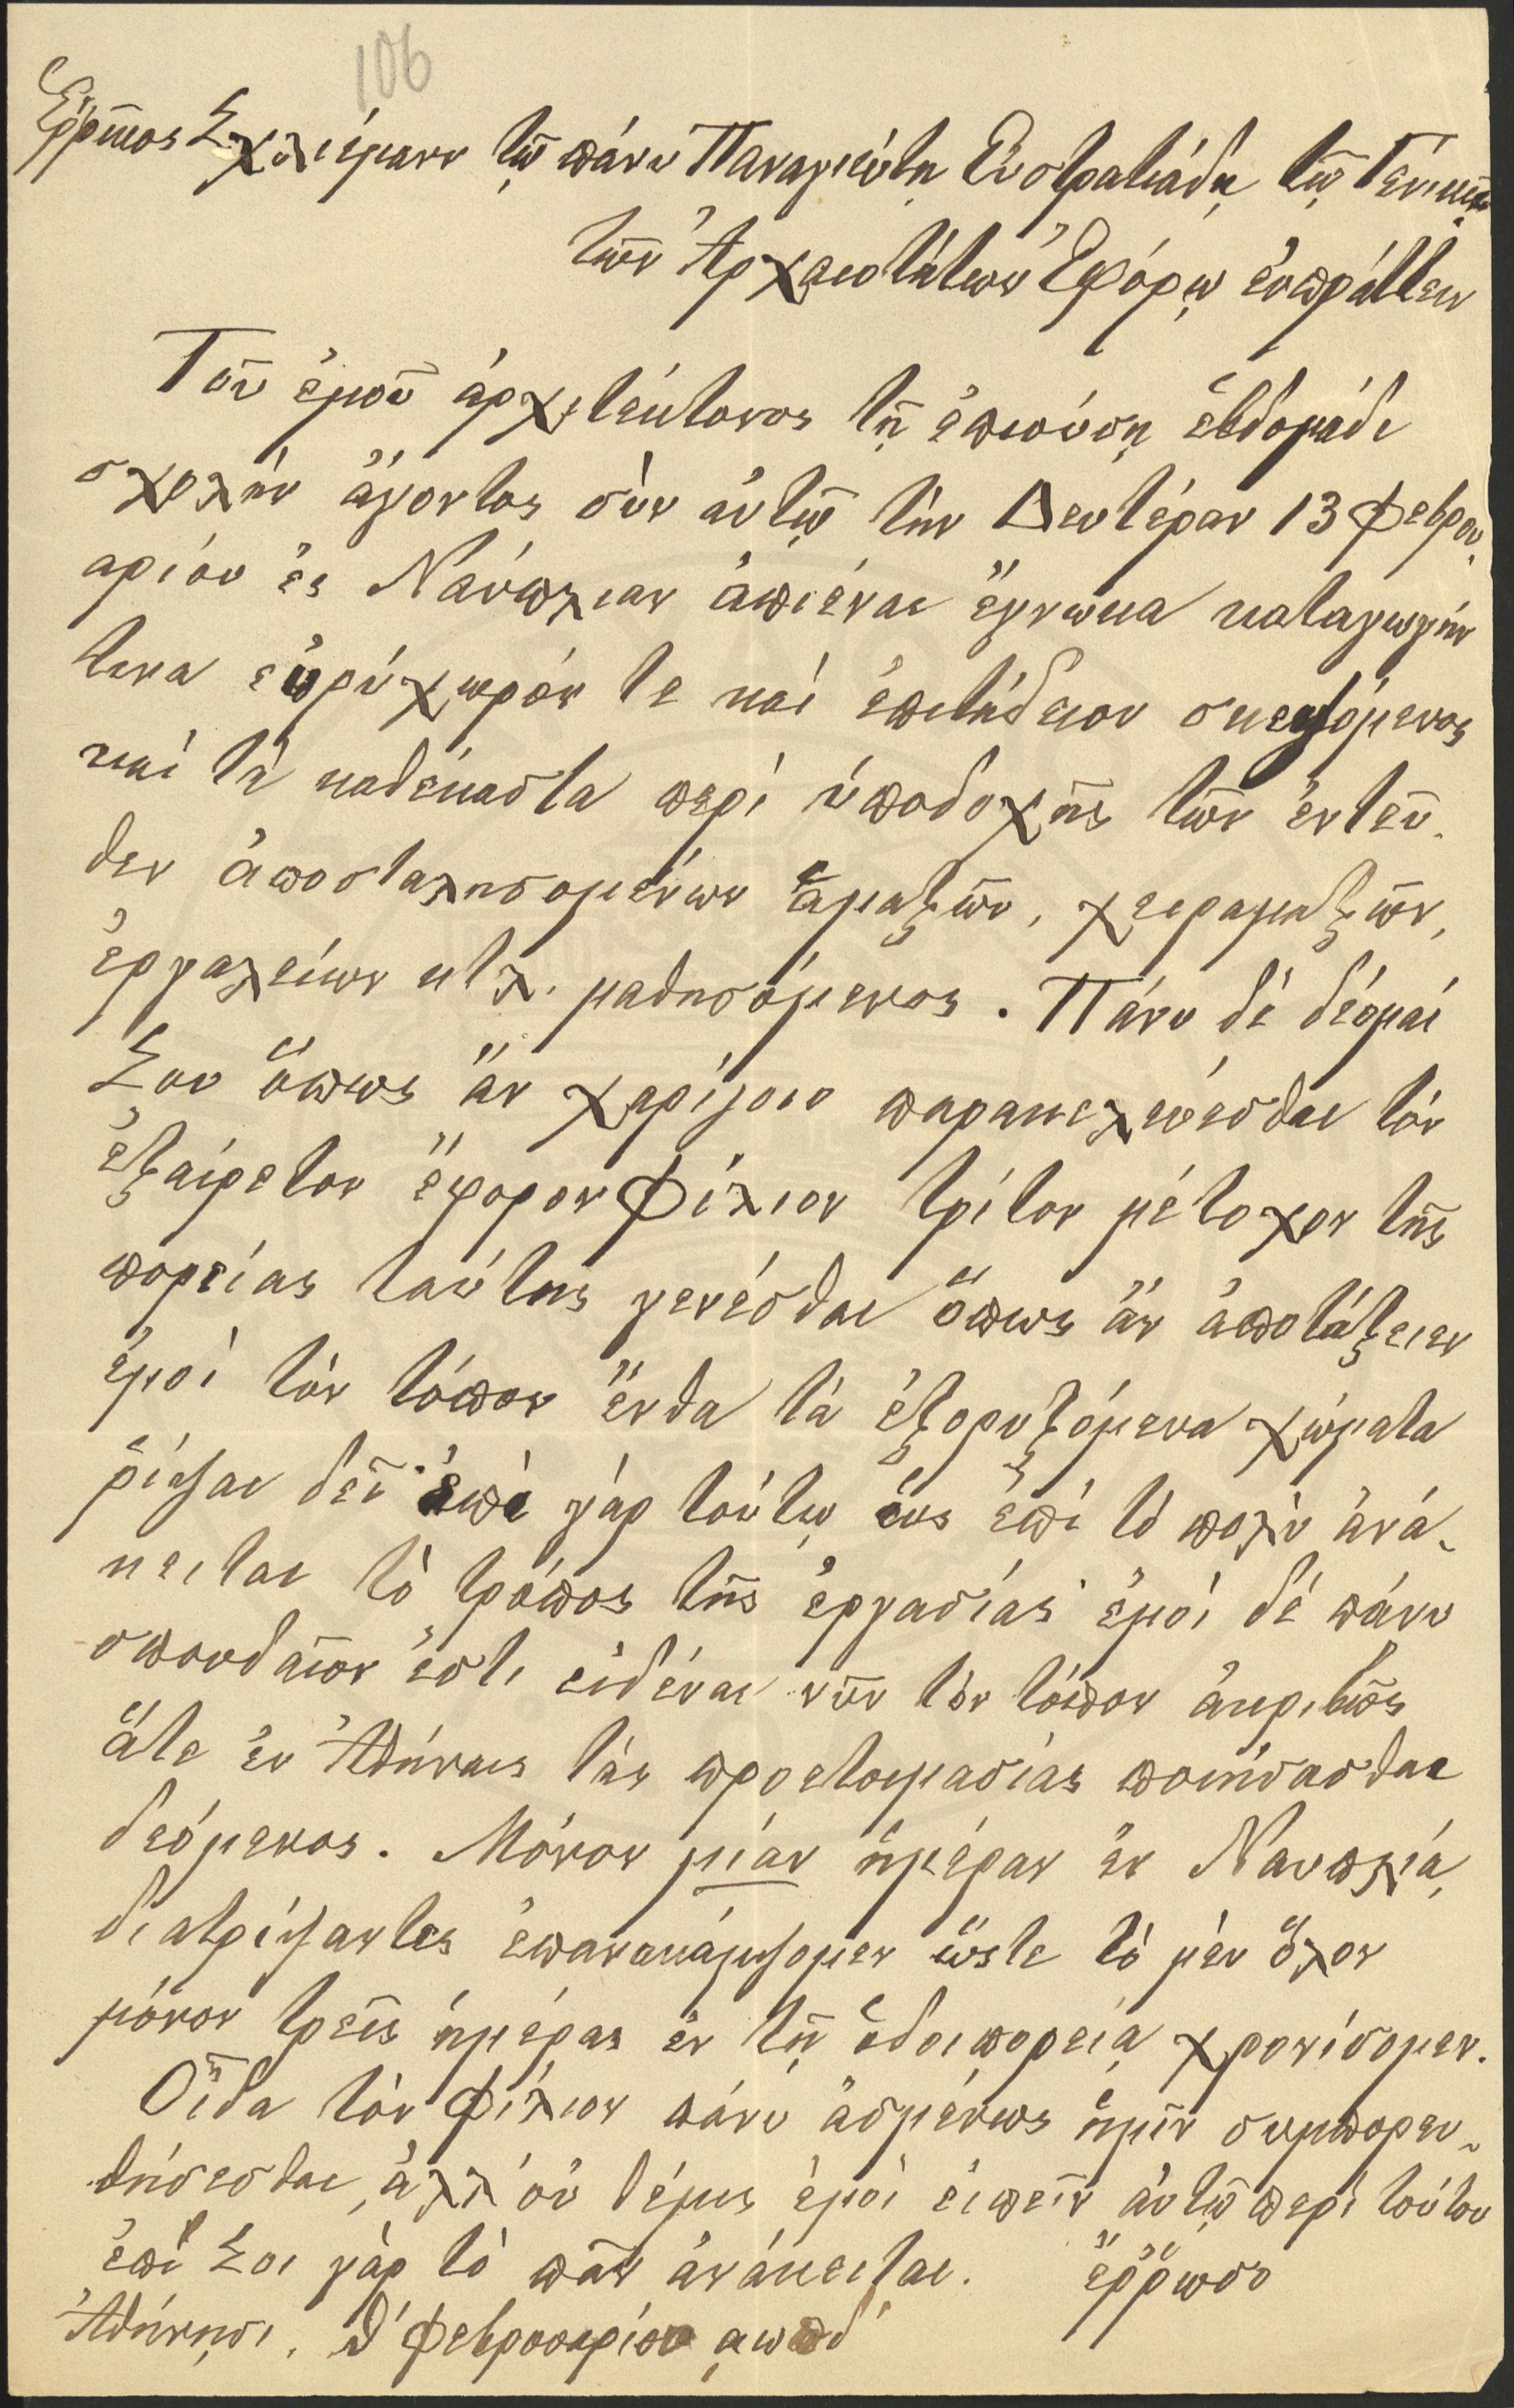 106
Ἐρρῖκος Σχλιέμανν τῷ πάνυ Παναγιώτῃ Εὐστρατιάδῃ τῷ Γενικῷ
τῶν Ἀρχαιοτήτων Ἐφόρῳ εὐπράττειν
Τοῦ ἐμοῦ ἀρχιτέκτονος τῇ ἐπιούσῃ ἑβδομάδι
σχολὴν ἄγοντος σὺν αὐτῷ τὴν Δευτέραν 13 Φεβρου
αρίου ἐς Ναύπλιαν ἀπιέναι ἔγνωκα καταγωγήν
τινα εὐρύχωρόν τε καὶ ἐπιτήδειον σκεψόμενος
καὶ τὰ καθέκαστα περὶ ὑποδοχῆς τῶν ἐντεῦ
θεν ἀποσταλησομένων ἁμαξῶν, χειραμαξῶν,
ἐργαλείων κτλ. μαθησόμενος. Πάνυ δὲ δέομαί
Σου ὅπως ἂν χαρίζοιο παρακελεύεσθαι τὸν
ἐξαίρετον ἔφορον Φίλιον τρίτον μέτοχον τῆς
πορείας ταύτης γενέσθαι ὅπως ἂν ἀποτάξειεν
ἐμοὶ τὸν τόπον ἔνθα τὰ ἐξορυξόμενα χώματα
ῥίψαι δεῖ· ἐπὶ γὰρ τούτῳ ὡς ἐπὶ τὸ πολὺ ἀνά-
κειται τὸ τρόπος τῆς ἐργασίας· ἐμοὶ δὲ πάνυ
σπουδαῖον ἐστι εἰδέναι νῦν τὸν τόπον ἀκριβῶς
ἅτε ἐν Ἀθήναις τὰς προετοιμασίας ποιήσασθαι
δεόμενος. Μόνον μίαν ἡμέραν ἐν Ναυπλίᾳ
διατρίψαντες ἐπανακάμψομεν ὥστε τὸ μὲν ὅλον
μόνον τρεῖς ἡμέρας ἐν τῇ ὁδοιπορείᾳ χρονίσομεν.
Οἶδα τὸν Φίλιον πάνυ ἀσμένως ἡμῖν συμπορευ-
θήσεσθαι, ἀλλ' οὐ θέμις ἐμοὶ εἰπεῖν αὐτῷ περὶ τούτου
ἐπὶ Σοι γὰρ τὸ πᾶν ἀνάκειται. ἔρρωσο
Ἀθήνησι, θ' Φεβρουαρίου αωπδ'